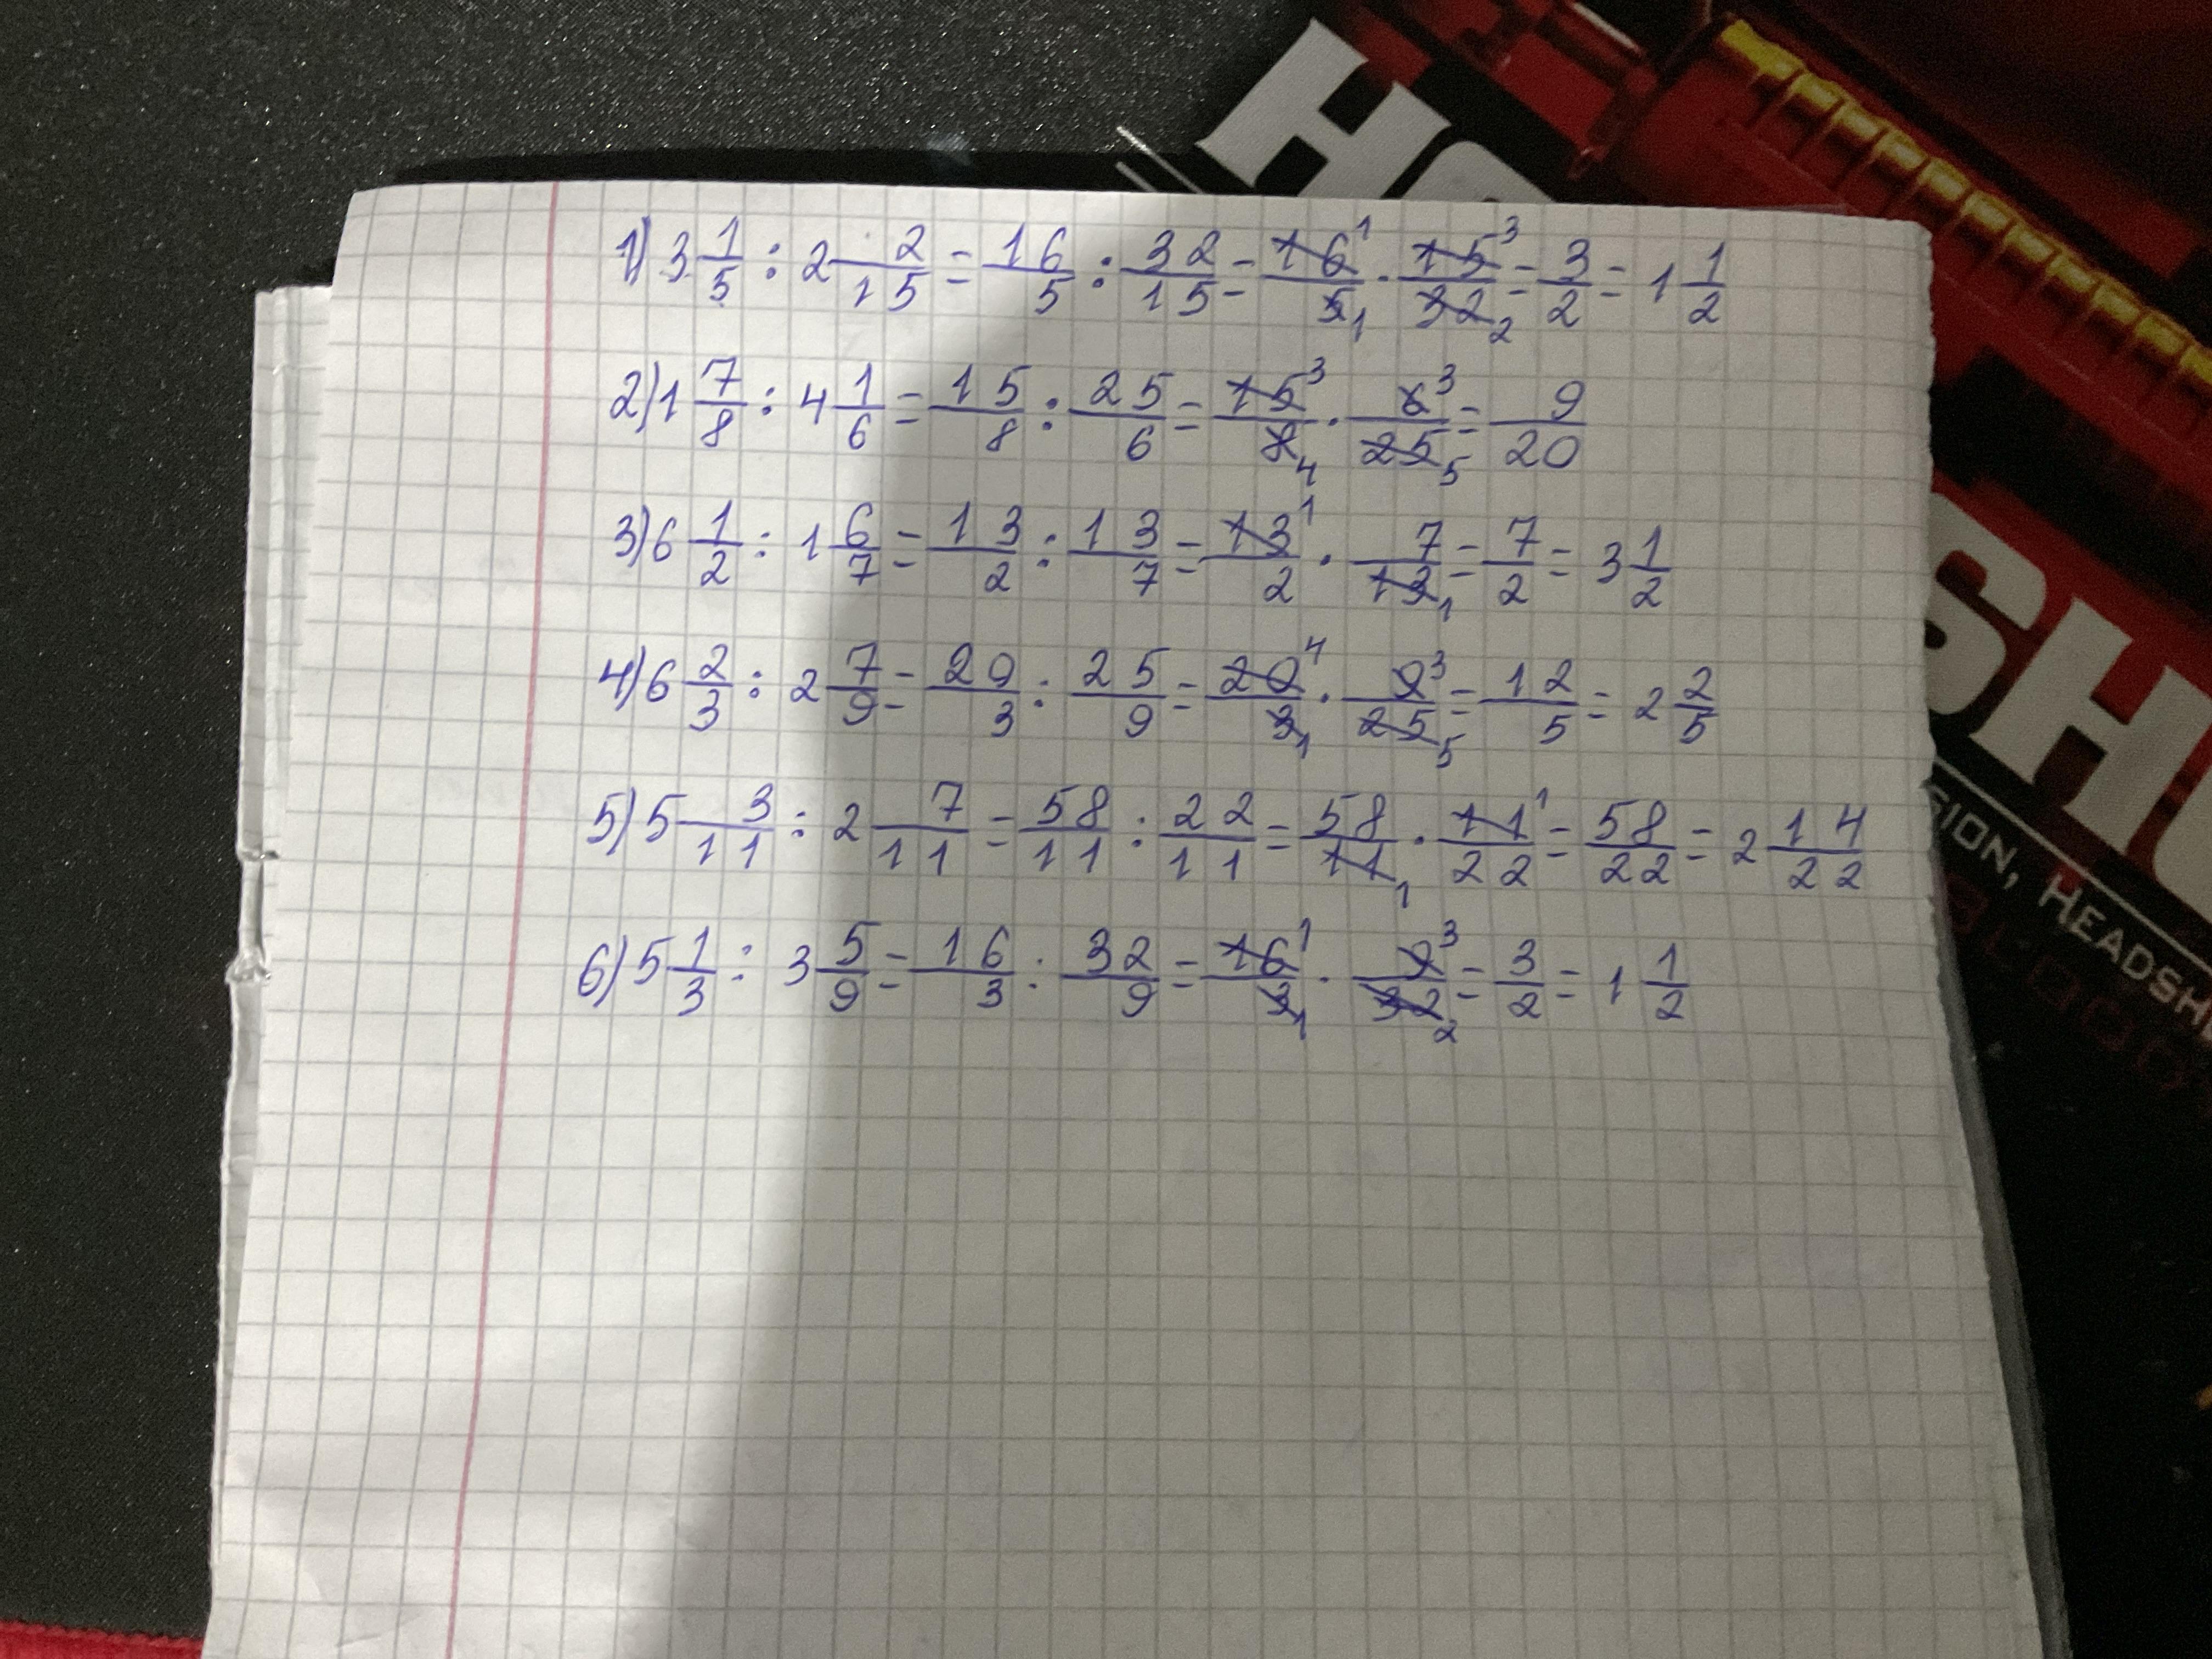 1) 3 1/5 : 2 2/15 = 16/5 : 32/15 = 16¹/5₁ · 15³/32₂ = 3/2 = 1 1/2
2) 1 7/8 : 4 1/6 = 15/8 : 25/6 = 15³/8₄ · 6³/25₅ = 9/20
3) 6 1/2 : 1 6/7 = 13/2 : 13/7 = 13¹/2 · 7/13₁ = 7/2 = 3 1/2
4) 6 2/3 : 2 7/9 = 20/3 : 25/9 = 20⁴/3₁ · 9³/25₅ = 12/5 = 2 2/5
5) 5 3/11 : 2 7/11 = 58/11 : 22/11 = 58/11₁ · 11¹/22 = 58/22 = 2 14/22
6) 5 1/3 : 3 5/9 = 16/3 : 32/9 = 16¹/3₁ · 9³/32₂ = 3/2 = 1 1/2
SION, HEADSH